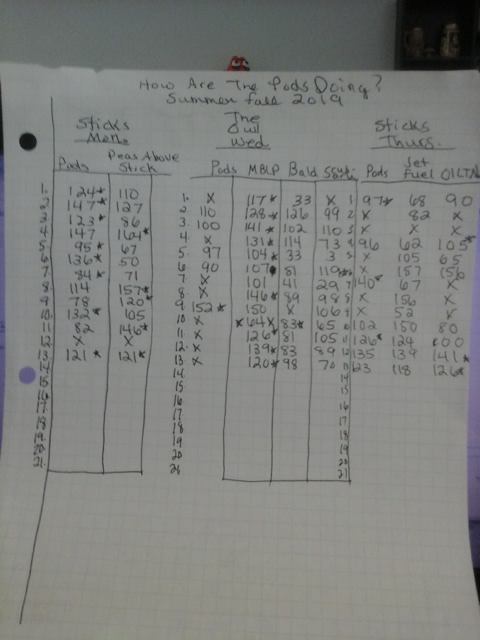 How Are The Pods Doing?
Summer fall 2019
Sticks The Sticks
Mon. Owl Thurs.
Wed
Pods Peas Above Stick Pods MBLP Bald Pods Jet Fuel OILTN
1. 124* 110 1. X 117* 33 X 1 97* 68 90
2. 147* 127 2. 110 128* 126 99 2 X 82 X
3. 123* 86 3. 100 141* 102 110 3 X X X
4. 147 164* 4. X 131* 114 73 4 96 62 105*
5. 95* 67 5. 97 104* 33 3 5 X 105 65
6. 136* 50 6. 90 107 81 X 157
7. 84* 71 7. X 101 41 29 7 140* 67 X
8. 114 157* 8. X 146* 89 98 8 X 156 X
9. 78 120* 9. 152* 150 X 106 X 52
10. 132* 105 10. X *64X 83* 65 102 150 80
11. 82 146* 11. X 126* 81 105 11 126* 124
12. X X 12. X 139* 83 89 135 139 141*
13. 121* 121* 13. X 120* 98 70 118 126*
14. 14. 14
15. 15. 15
16. 16. 16
17. 17 17
18. 18 18
19. 19 19
20. 20 20
21. 21